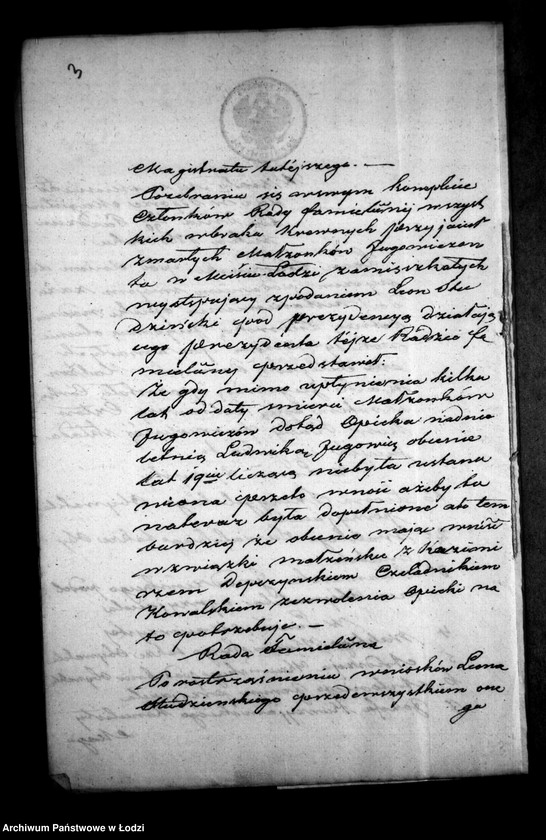 3
Magistratu tutejszego. —
Po zebraniu się w swym komplecie
Członków Rady familijnej wszyst
kich w braku Krewnych przyjaciół
zmarłych Małżonków Jugowiczon
tu w Mieście Łodzi zamieszkałych
występujący z podaniem Leon Stu
dziński pod prezydencyą działają
cego prezydenta tejże Radzie fa
mielijnej przedstawił:
Że gdy mimo upłynienia kilku
lat od daty śmierci Małżonków
Jugowiczów dotąd Opieka nad nie
letnią Ludwiką Jugowią obecnie
lat 19cie liczącą niebyła ustana
wiona przeto wnosi ażeby ta
na teraz była dopełnione a to tem
bardziej że obecnie mając wniść
w związki małżeńskie z Kazimi
rzem Depczynskiem Czeladnikiem
Kowalskiem zezwolenia Opieki na
to potrzebuje. —
Rada Familijna
Po roztrząśnieniu wniosków Leona
Studzienskiego przedewszystkiem one
go
Archiwum Państwowe w Łodzi